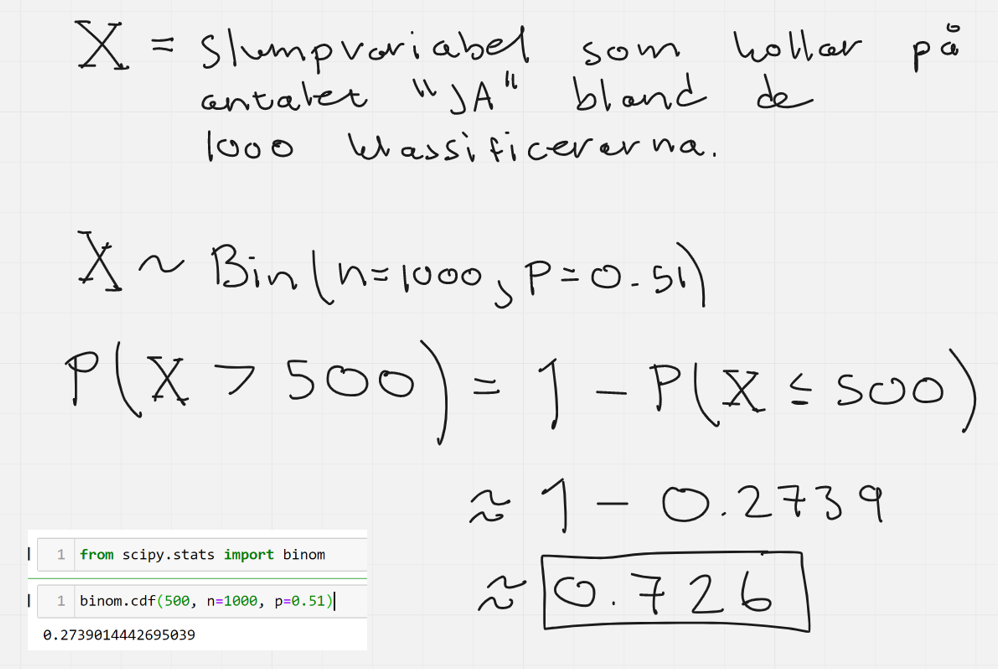 X = slumpvariabel som kollar på
antalet "JA" bland de
1000 klassificerarna.
X ~ Bin(n=1000, p=0.51)
P(X > 500) = 1 - P(X ≤ 500)
≈ 1 - 0.2739
≈ 0.726
1 from scipy.stats import binom
1 binom.cdf(500, n=1000, p=0.51)
0.2739014442695039